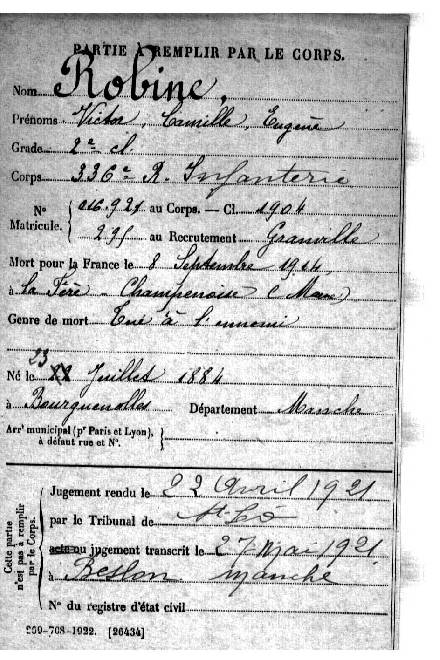 PARTIE À REMPLIR PAR LE CORPS.
Nom Robine,
Prénoms Victor, Camille, Eugène
Grade 2e cl
Corps 336e R. Infanterie
N° Matricule. { 016.921 au Corps. — Cl. 1904
235 au Recrutement Granville
Mort pour la France le 8 Septembre 1914
à la Fère Champenoise (Marne)
Genre de mort Tué à l'ennemi
Né le 23 Juillet 1884
à Bourguenolles Département Manche
Arrt municipal (pr Paris et Lyon), à défaut rue et N°. {
Cette partie n'est pas à remplir par le Corps.
Jugement rendu le 22 Avril 1921
par le Tribunal de St Lô
acte ou jugement transcrit le 27 Mai 1921
à Beslon Manche
N° du registre d'état civil
260-708-1922. [26434]